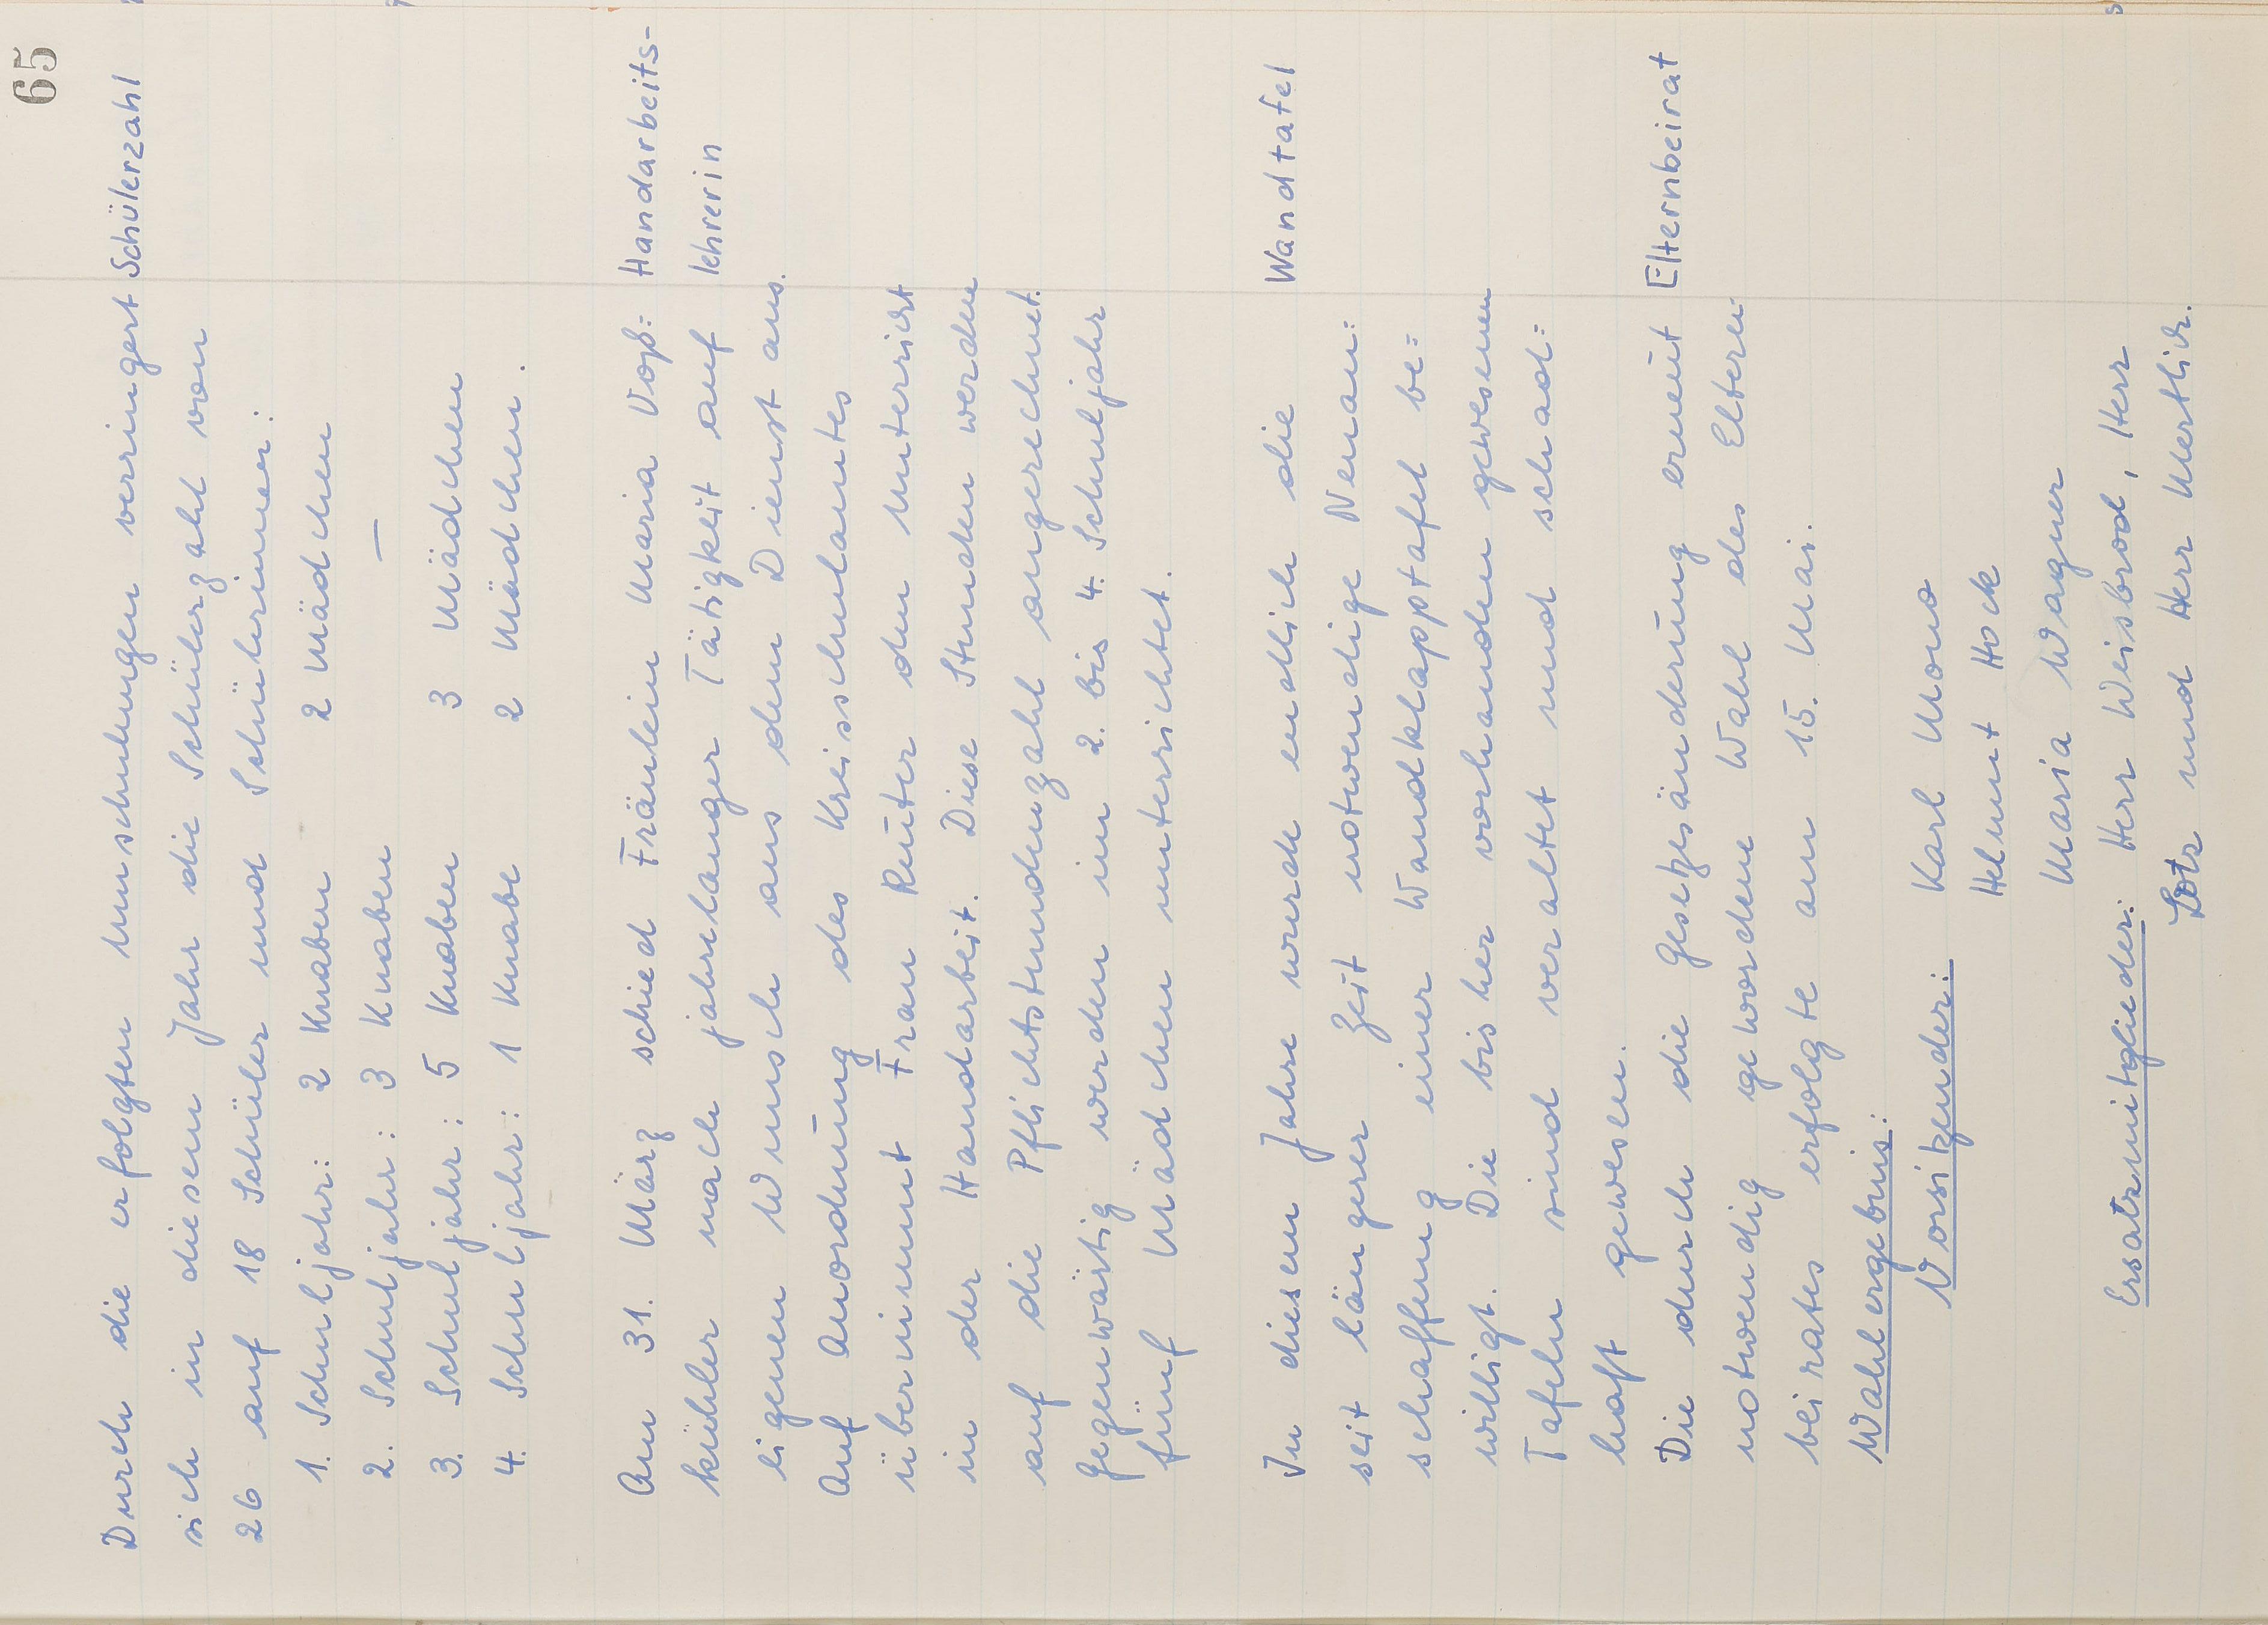 65
Durch die erfolgten Umschulungen verringert Schülerzahl
sich in diesem Jahr die Schülerzahl von
26 auf 18 Schüler und Schülerinnen:
1. Schuljahr: 2 Knaben 2 Mädchen
2. Schuljahr: 3 Knaben —
3. Schuljahr: 5 Knaben 3 Mädchen
4. Schuljahr: 1 Knabe 2 Mädchen.
Am 31. März schied Fräulein Maria Voß= Handarbeits-
kühler nach jahrelanger Tätigkeit auf lehrerin
eigenen Wunsch aus dem Dienst aus.
Auf Anordnung des Kreisschulamtes
übernimmt Frau Rüter den Unterricht
in der Handarbeit. Diese Stunden werden
auf die Pflichtstundenzahl angerechnet.
Gegenwärtig werden im 2. bis 4. Schuljahr
fünf Mädchen unterrichtet.
In diesem Jahre wurde endlich die Wandtafel
seit längerer Zeit notwendige Neuan=
schaffung einer Wandklapptafel be=
willigt. Die bisher vorhanden gewesenen
Tafeln sind veraltet und schad=
haft gewesen.
Die durch die Gesetzesänderung erneut Elternbeirat
notwendig gewordene Wahl des Eltern=
beirates erfolgte am 15. Mai.
Wahlergebnis:
Vorsitzender: Karl Mono
Helmut Hock
Maria Wagner
Ersatzmitglieder: Herr Weisbrod, Herr
Lotz und Herr Mertlich.